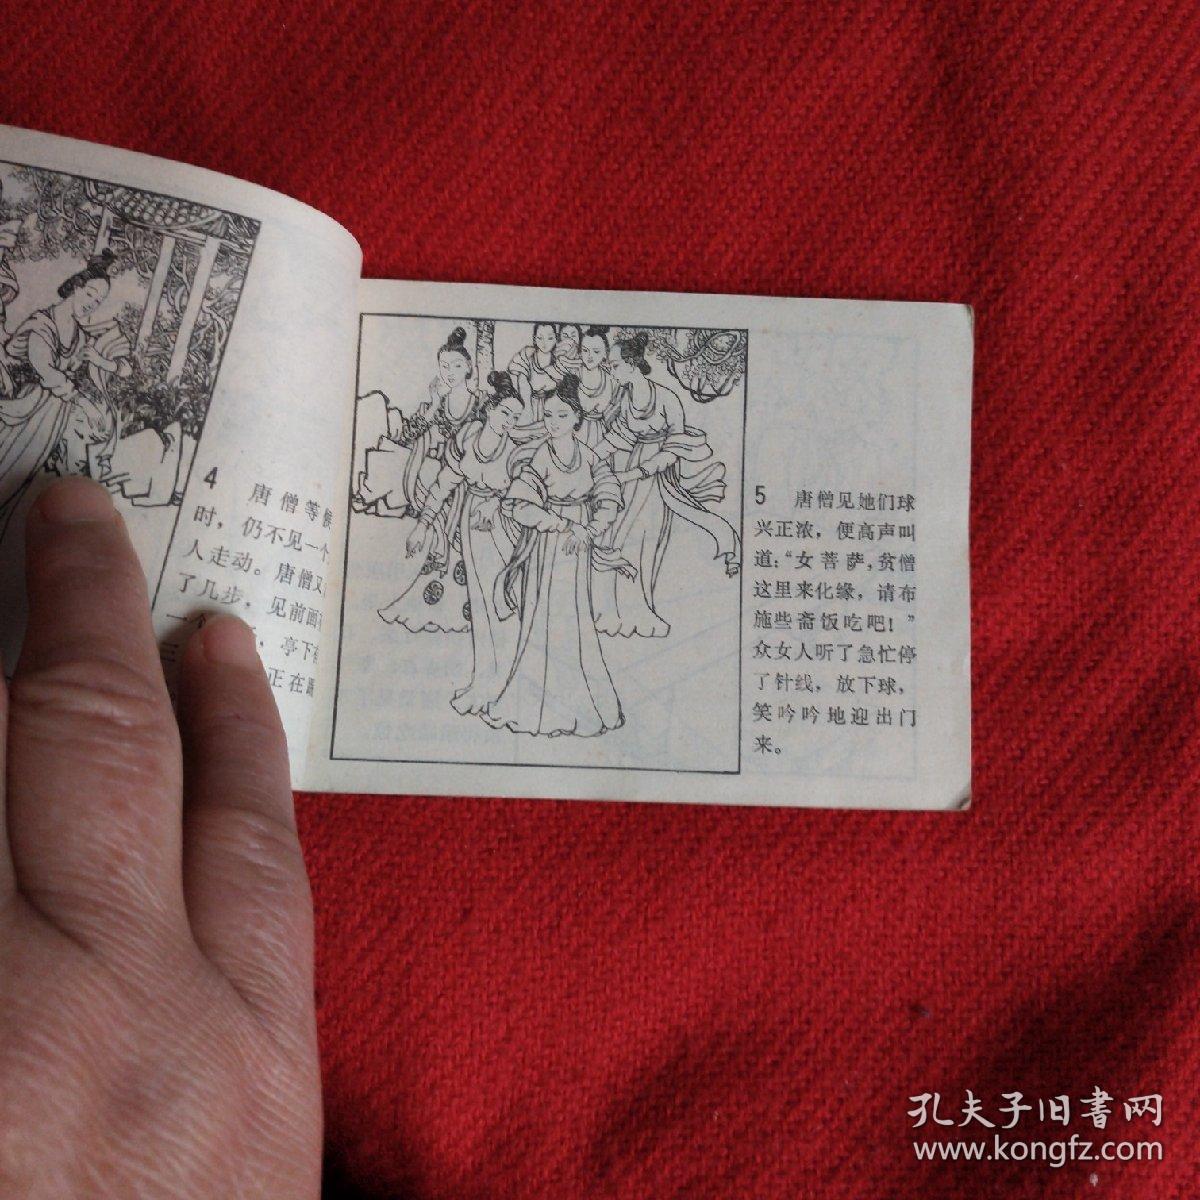 4 唐僧等
时，仍不见一个
人走动。唐僧又
了几步，见前面
一个 ，亭下
正在踢
5 唐僧见她们球
兴正浓，便高声叫
道：“女菩萨，贫僧
这里来化缘，请布
施些斋饭吃吧！”
众女人听了急忙停
了针线，放下球，
笑吟吟地迎出门
来。
孔夫子旧書网
www.kongfz.com